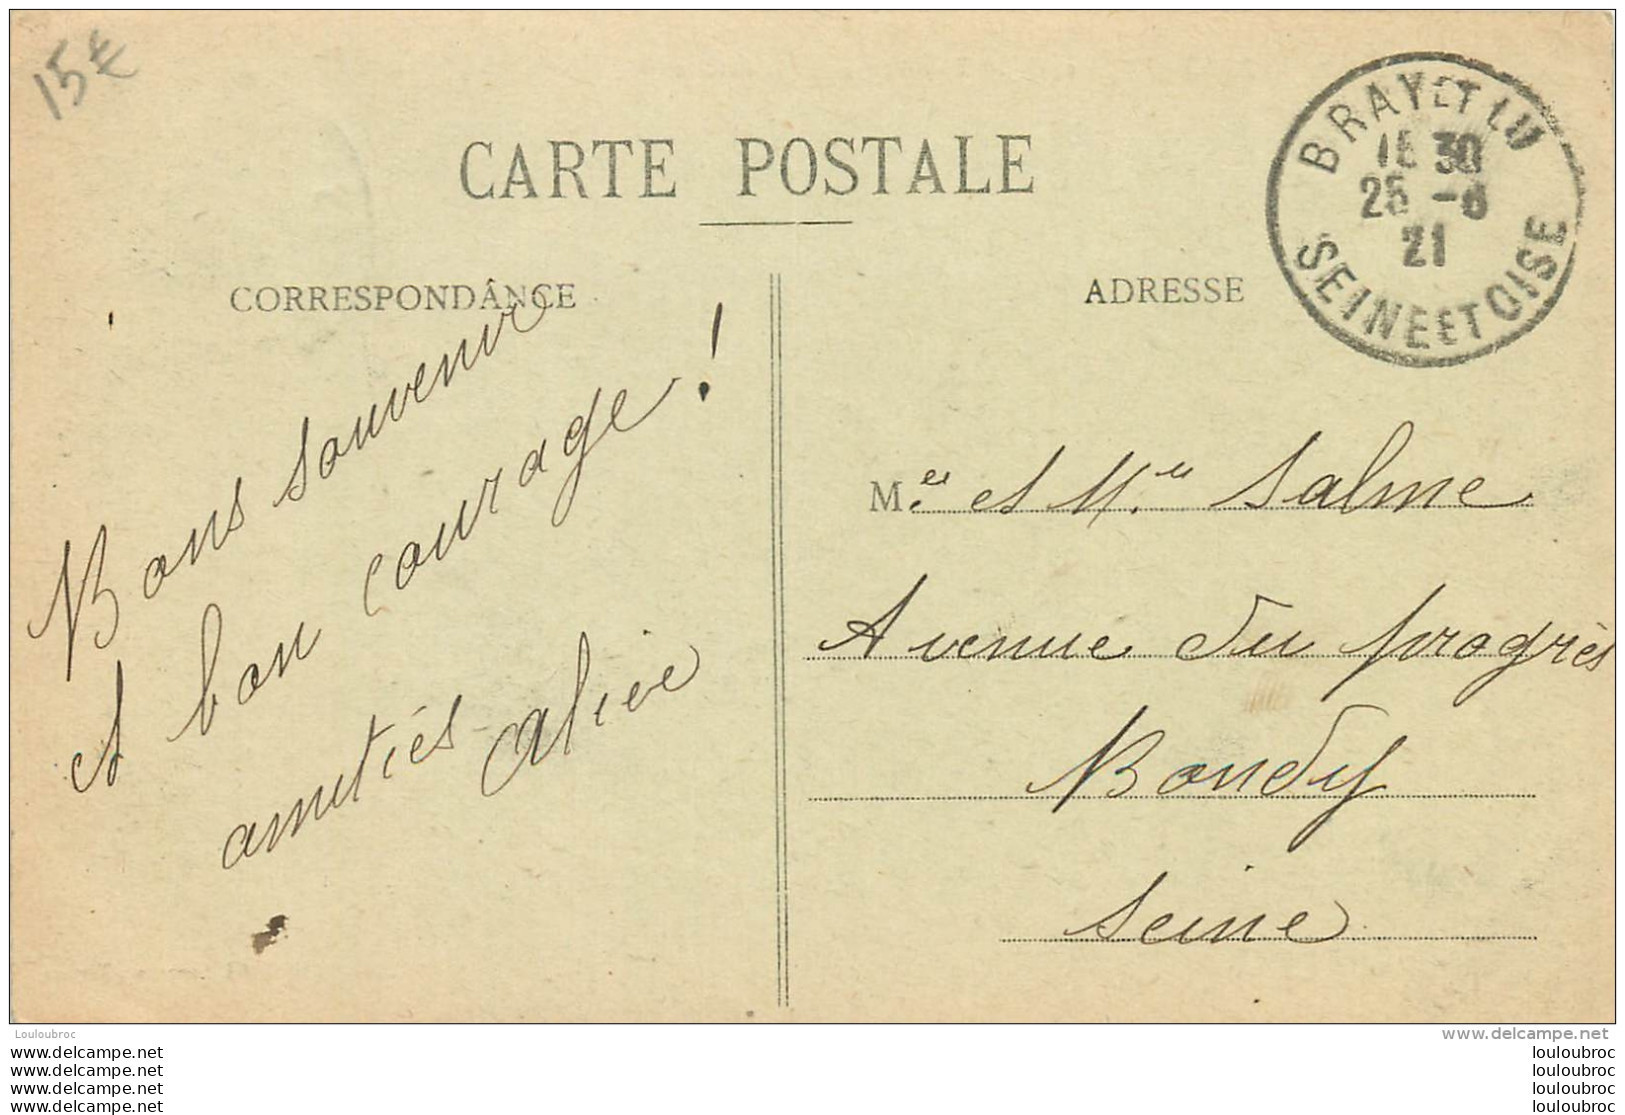 15€
CARTE POSTALE
BRAY ET LU
30
25 -6
21
SEINE ET OISE
CORRESPONDANCE
Bons souvenir
et bon courage !
amitiés Alice
ADRESSE
M.er et Mme Salme
Avenue du progrès
Bondy
Seine
Louloubroc
www.delcampe.net
www.delcampe.net
louloubroc
www.delcampe.net
louloubroc
www.delcampe.net
louloubroc
www.delcampe.net
louloubroc